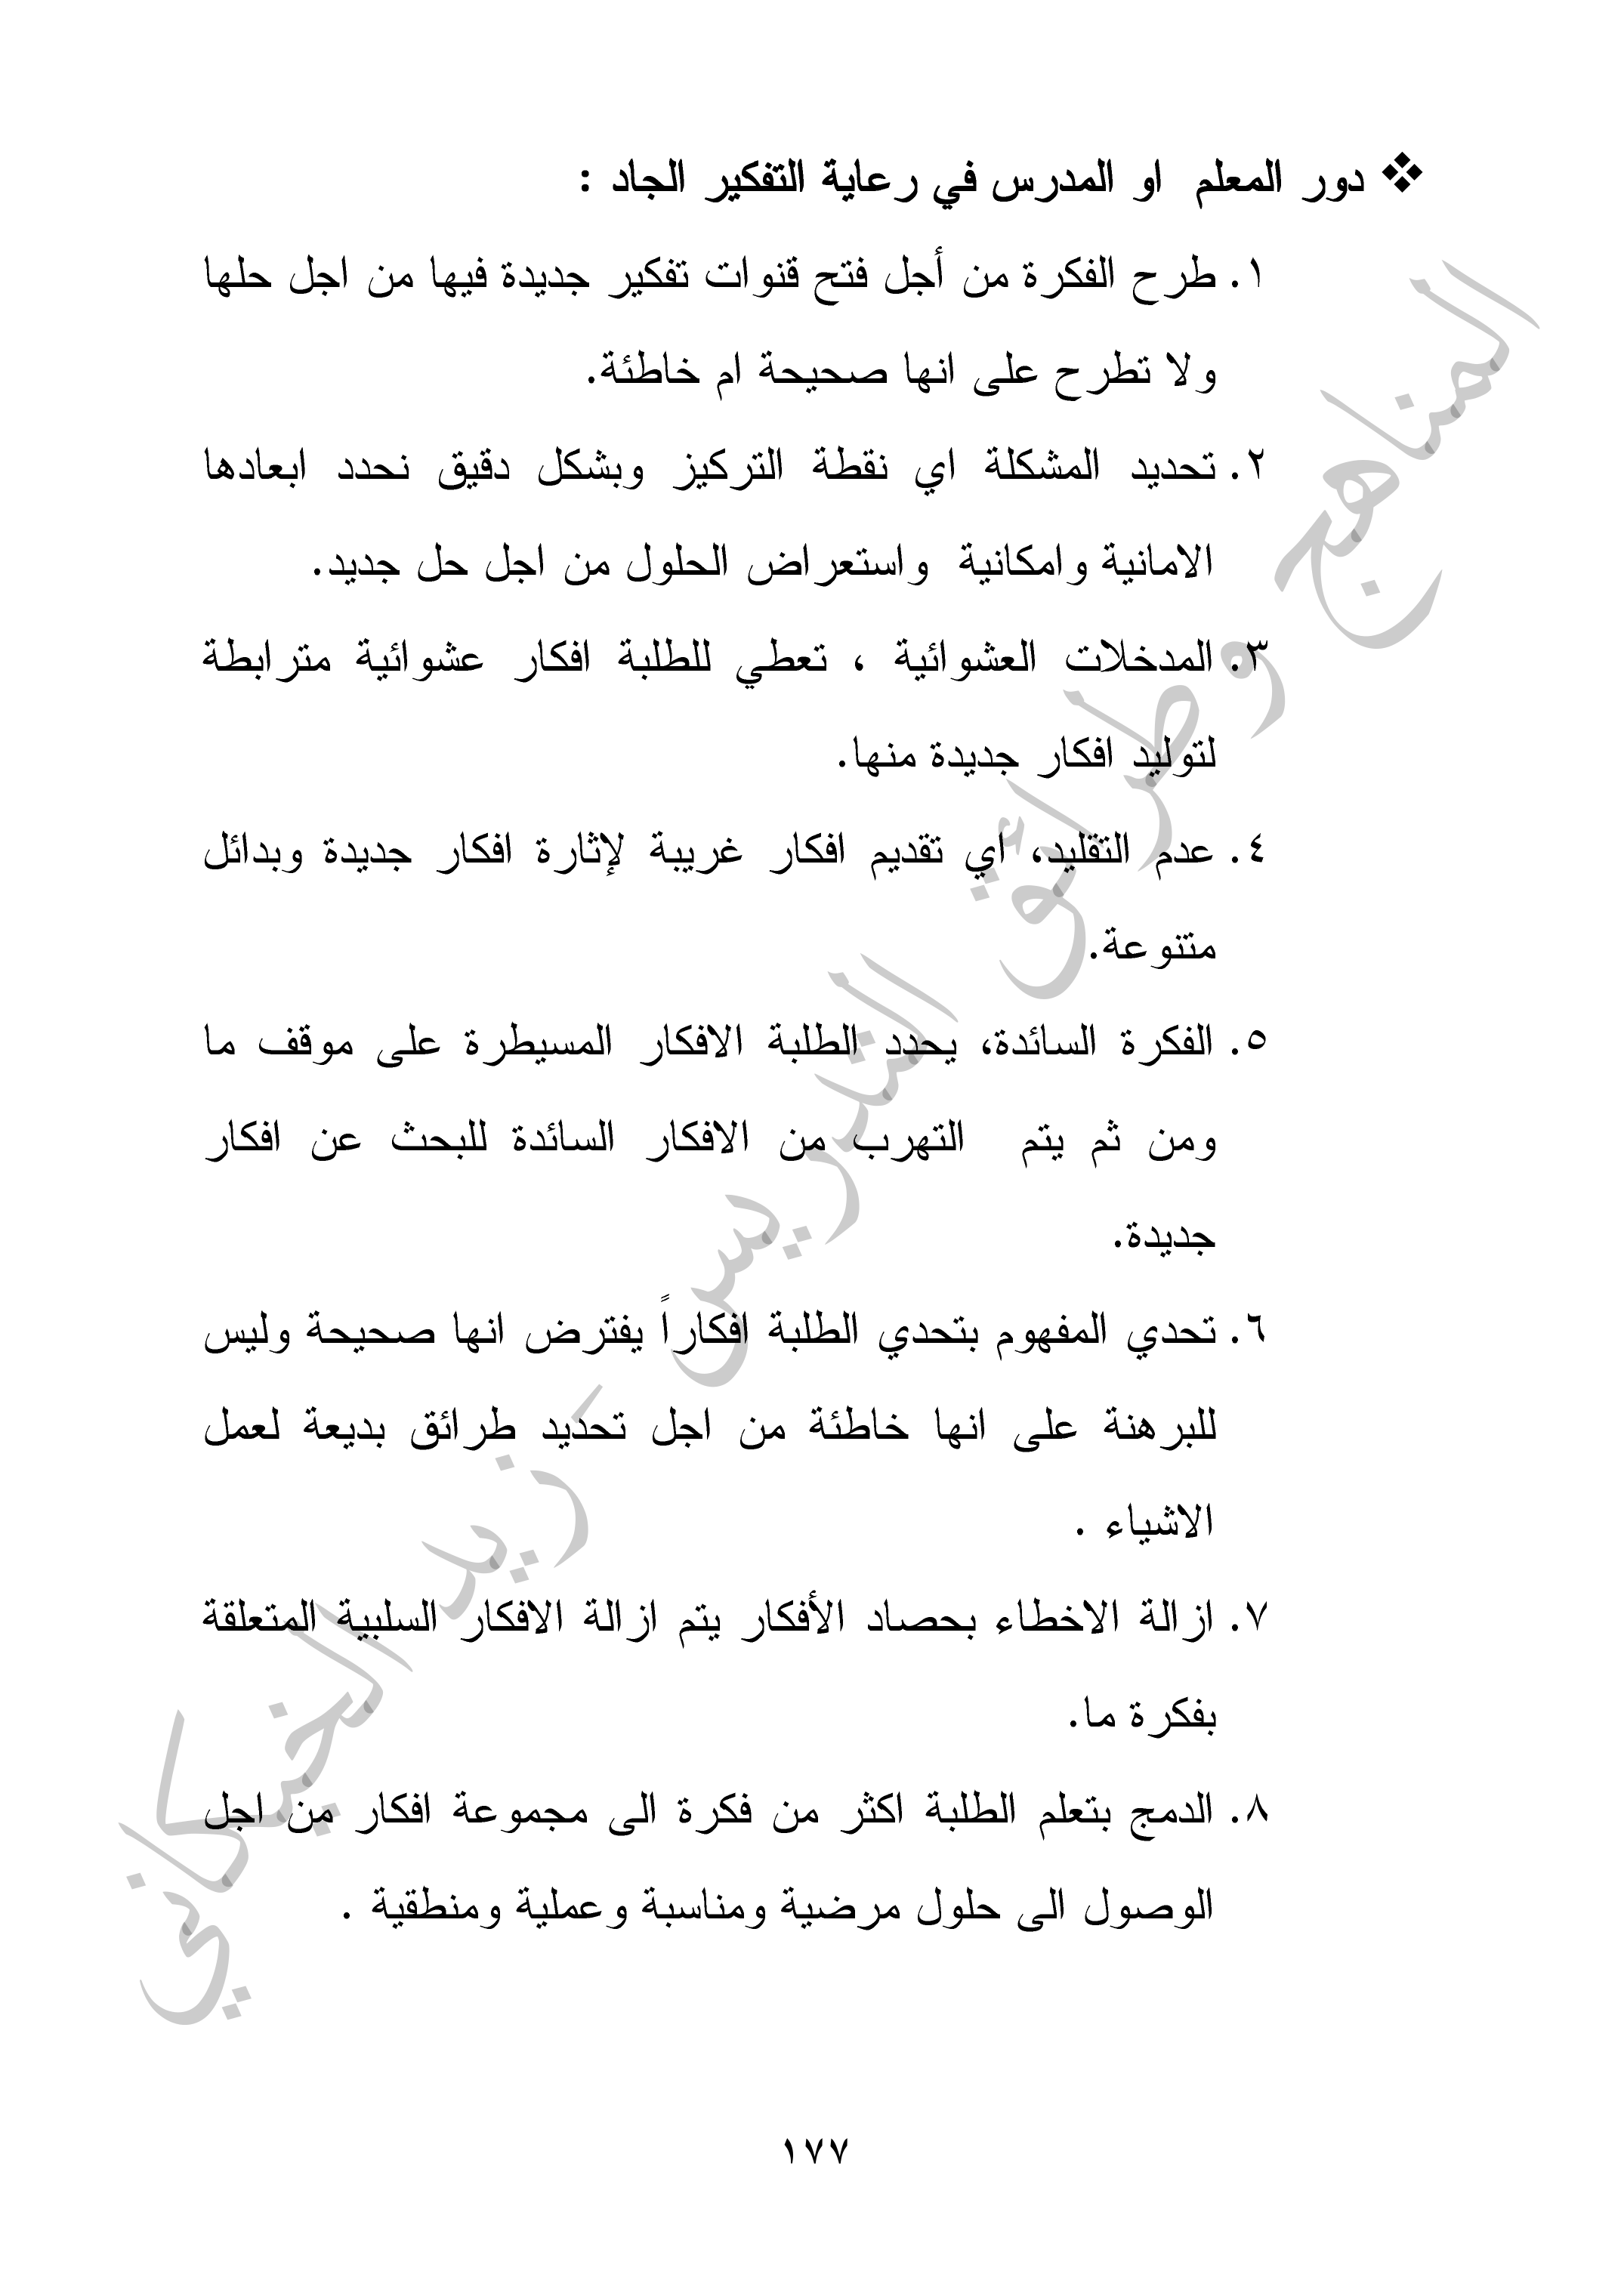 ❖ دور المعلم او المدرس في رعاية التفكير الجاد :
١. طرح الفكرة من أجل فتح قنوات تفكير جديدة فيها من اجل حلها
ولا تطرح على انها صحيحة ام خاطئة.
٢. تحديد المشكلة اي نقطة التركيز وبشكل دقيق نحدد ابعادها
الامانية وامكانية واستعراض الحلول من اجل حل جديد.
٣. المدخلات العشوائية ، تعطي للطلبة افكار عشوائية مترابطة
لتوليد افكار جديدة منها.
٤. عدم التقليد، اي تقديم افكار غريبة لإثارة افكار جديدة وبدائل
متنوعة.
٥. الفكرة السائدة، يحدد الطلبة الافكار المسيطرة على موقف ما
ومن ثم يتم التهرب من الافكار السائدة للبحث عن افكار
جديدة.
٦. تحدي المفهوم بتحدي الطلبة افكاراً يفترض انها صحيحة وليس
للبرهنة على انها خاطئة من اجل تحديد طرائق بديعة لعمل
الاشياء .
٧. ازالة الاخطاء بحصاد الأفكار يتم ازالة الافكار السلبية المتعلقة
بفكرة ما.
٨. الدمج بتعلم الطلبة اكثر من فكرة الى مجموعة افكار من اجل
الوصول الى حلول مرضية ومناسبة وعملية ومنطقية .
١٧٧
المناهج وطرائق التدريس - زيد الخيكاني